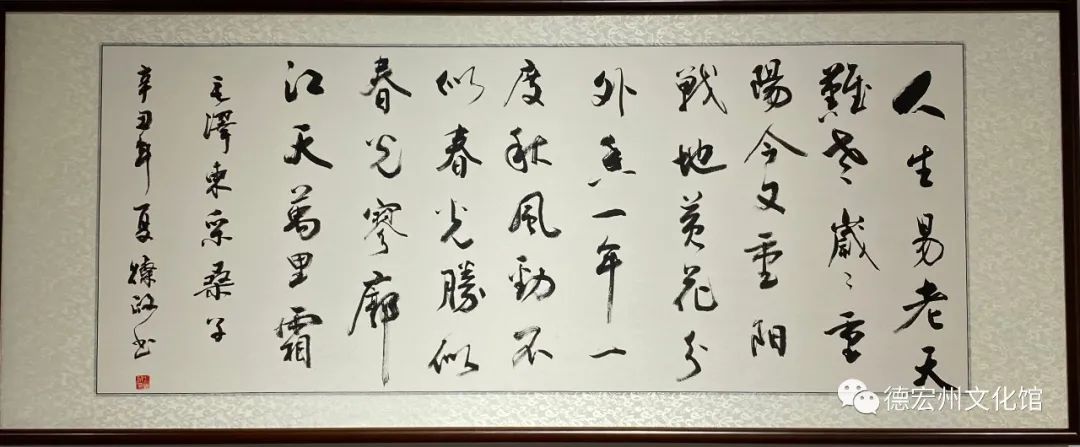 人生易老天
難老歲〻重
陽今又重阳
戦地黄花分
外香一年一
度秋風勁不
似春光勝似
春光寥廓
江天萬里霜
毛澤東采桑子
辛丑年夏 书
德宏州文化馆